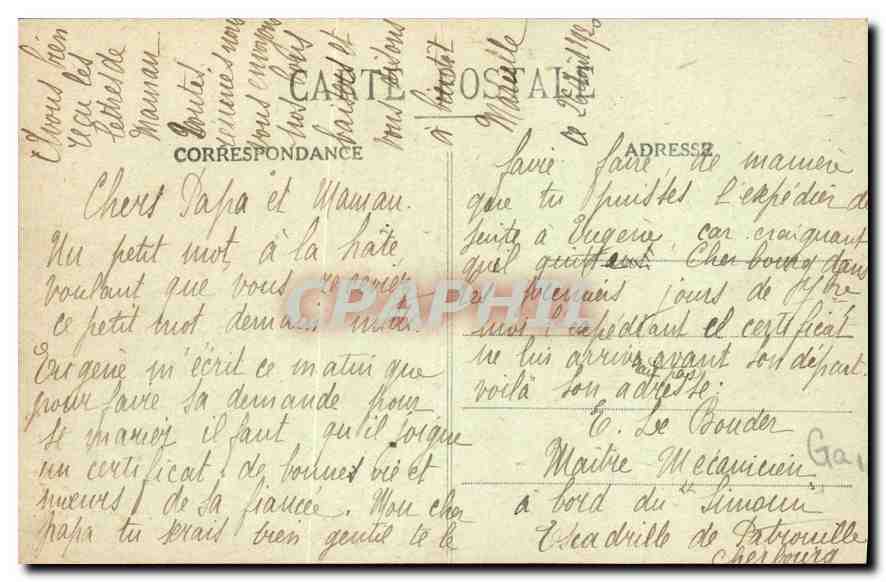 CARTE POSTALE
CORRESPONDANCE
ADRESSE
Marseille
ce 26 août 1920
Chers Papa et Maman.
Un petit mot à la hâte
voulant que vous receviez
ce petit mot demain midi.
Eugène m'écrit ce matin que
pour faire sa demande pour
se marier il faut qu'il joigne
un certificat de bonnes vie et
mœurs de sa fiancée. Mon cher
papa tu serais bien gentil te le
faire faire de manière
que tu puisses l'expédier de
suite à Eugène car craignant
qu'il quittent Cherbourg dans
les premiers jours de 7bre
moi l'expédiant cel certificat
ne lui arrive avant son départ.
rait pas
voilà son adresse:
E. Le Bouder
Maître Mécanicien
à bord du "Simoun"
Escadrille de Patrouille
Cherbourg
Avons bien
reçu les
lettres de
Maman
Toutes
réunies nous
vous envoyons
nos bons
baisers et
vous disons
à bientôt
CPAPHIL
Ga